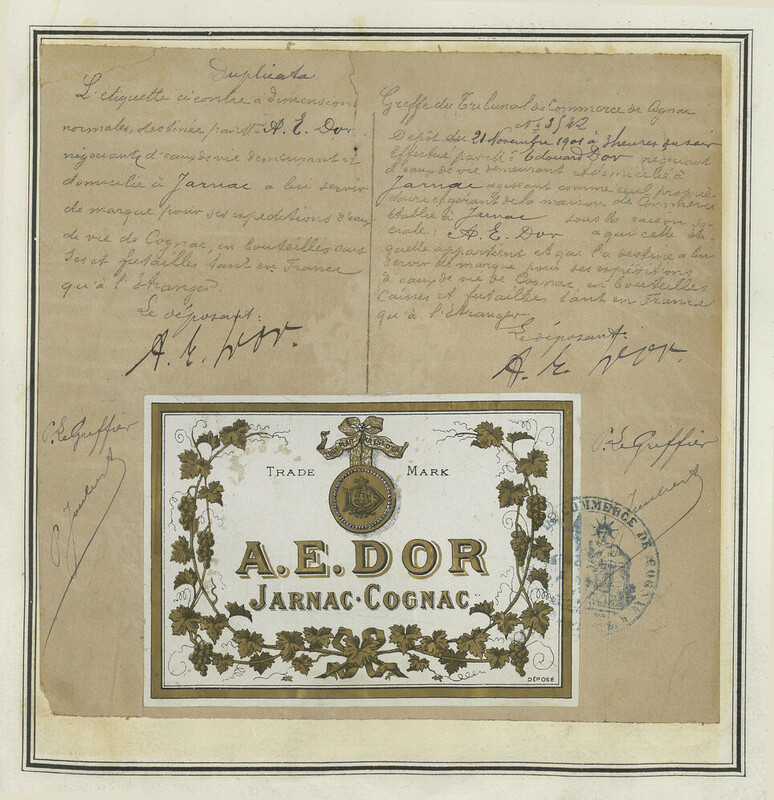 Duplicata
L'étiquette ci contre à dimensions
normales, destinée par Mr A. E. Dor,
négociant d'eaux de vie demeurant et
domicilié à Jarnac a lui servir
de marque pour ses expéditions d'eaux
de vie de Cognac, en bouteilles cais
ses et futailles tant en France
qu'à l'Etranger.
Le déposant:
A. E. Dor.
P. Le Greffier
Greffe du Tribunal de Commerce de Cognac
No 3542
Dépôt du 21 Novembre 1901 à 3 heures du soir
Effectué par Mr Edouard Dor négociant
d'eaux de vie demeurant et domicilié à
Jarnac agissant comme seul proprié
taire et gérant de la maison de Commerce
établie à Jarnac sous la raison so
ciale: A. E. Dor a qui cette éti
quette appartient et qui l'a destine a lui
servir de marque pour ses expéditions
d'eaux de vie de Cognac, en bouteilles
Caisses et futailles tant en France
qu'à l'étranger
Le déposant:
A. E. Dor.
P. Le Greffier
TRADE MARK
A.E.DOR
JARNAC·COGNAC
DÉPOSÉ
COMMERCE DE COGNAC